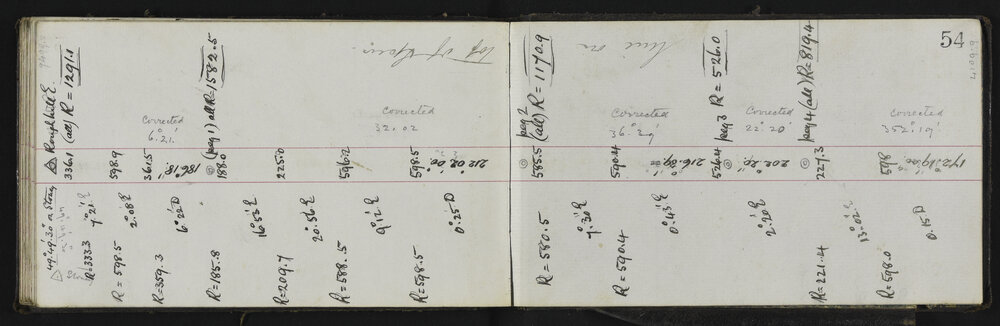 54
△ Rough hill E.
336.1 (all) R = 1291.1
R=333.3 7°21' E
598.9
R = 598.5 2°.08' E
corrected
6°.21'
361.5
186°18'
R=359.3 6°22' D
(peg 1) all R=1582.5
188.0
R=185.8
225.0
R=209.7 16°52' E
596.2
R=588.5 20°.56' E
9°12' E
top of Spur.
corrected
32.02
598.5
212°02'00"
R=598.5 0°.25' D
peg 2
585.5 (all) R = 1170.9
R = 580.5
line on
corrected
36°.29'
590.4
R = 590.4 7°.30' E
0°.43' E
peg 3 R = 526.0
526.4
corrected
22°.20'
202°20'
2°.20' E
peg 4 (all) R=819.4
227.3
R=221.4
13°.02' E
corrected
352°19'
598
172°19'00"
R=598.0 0.15' D